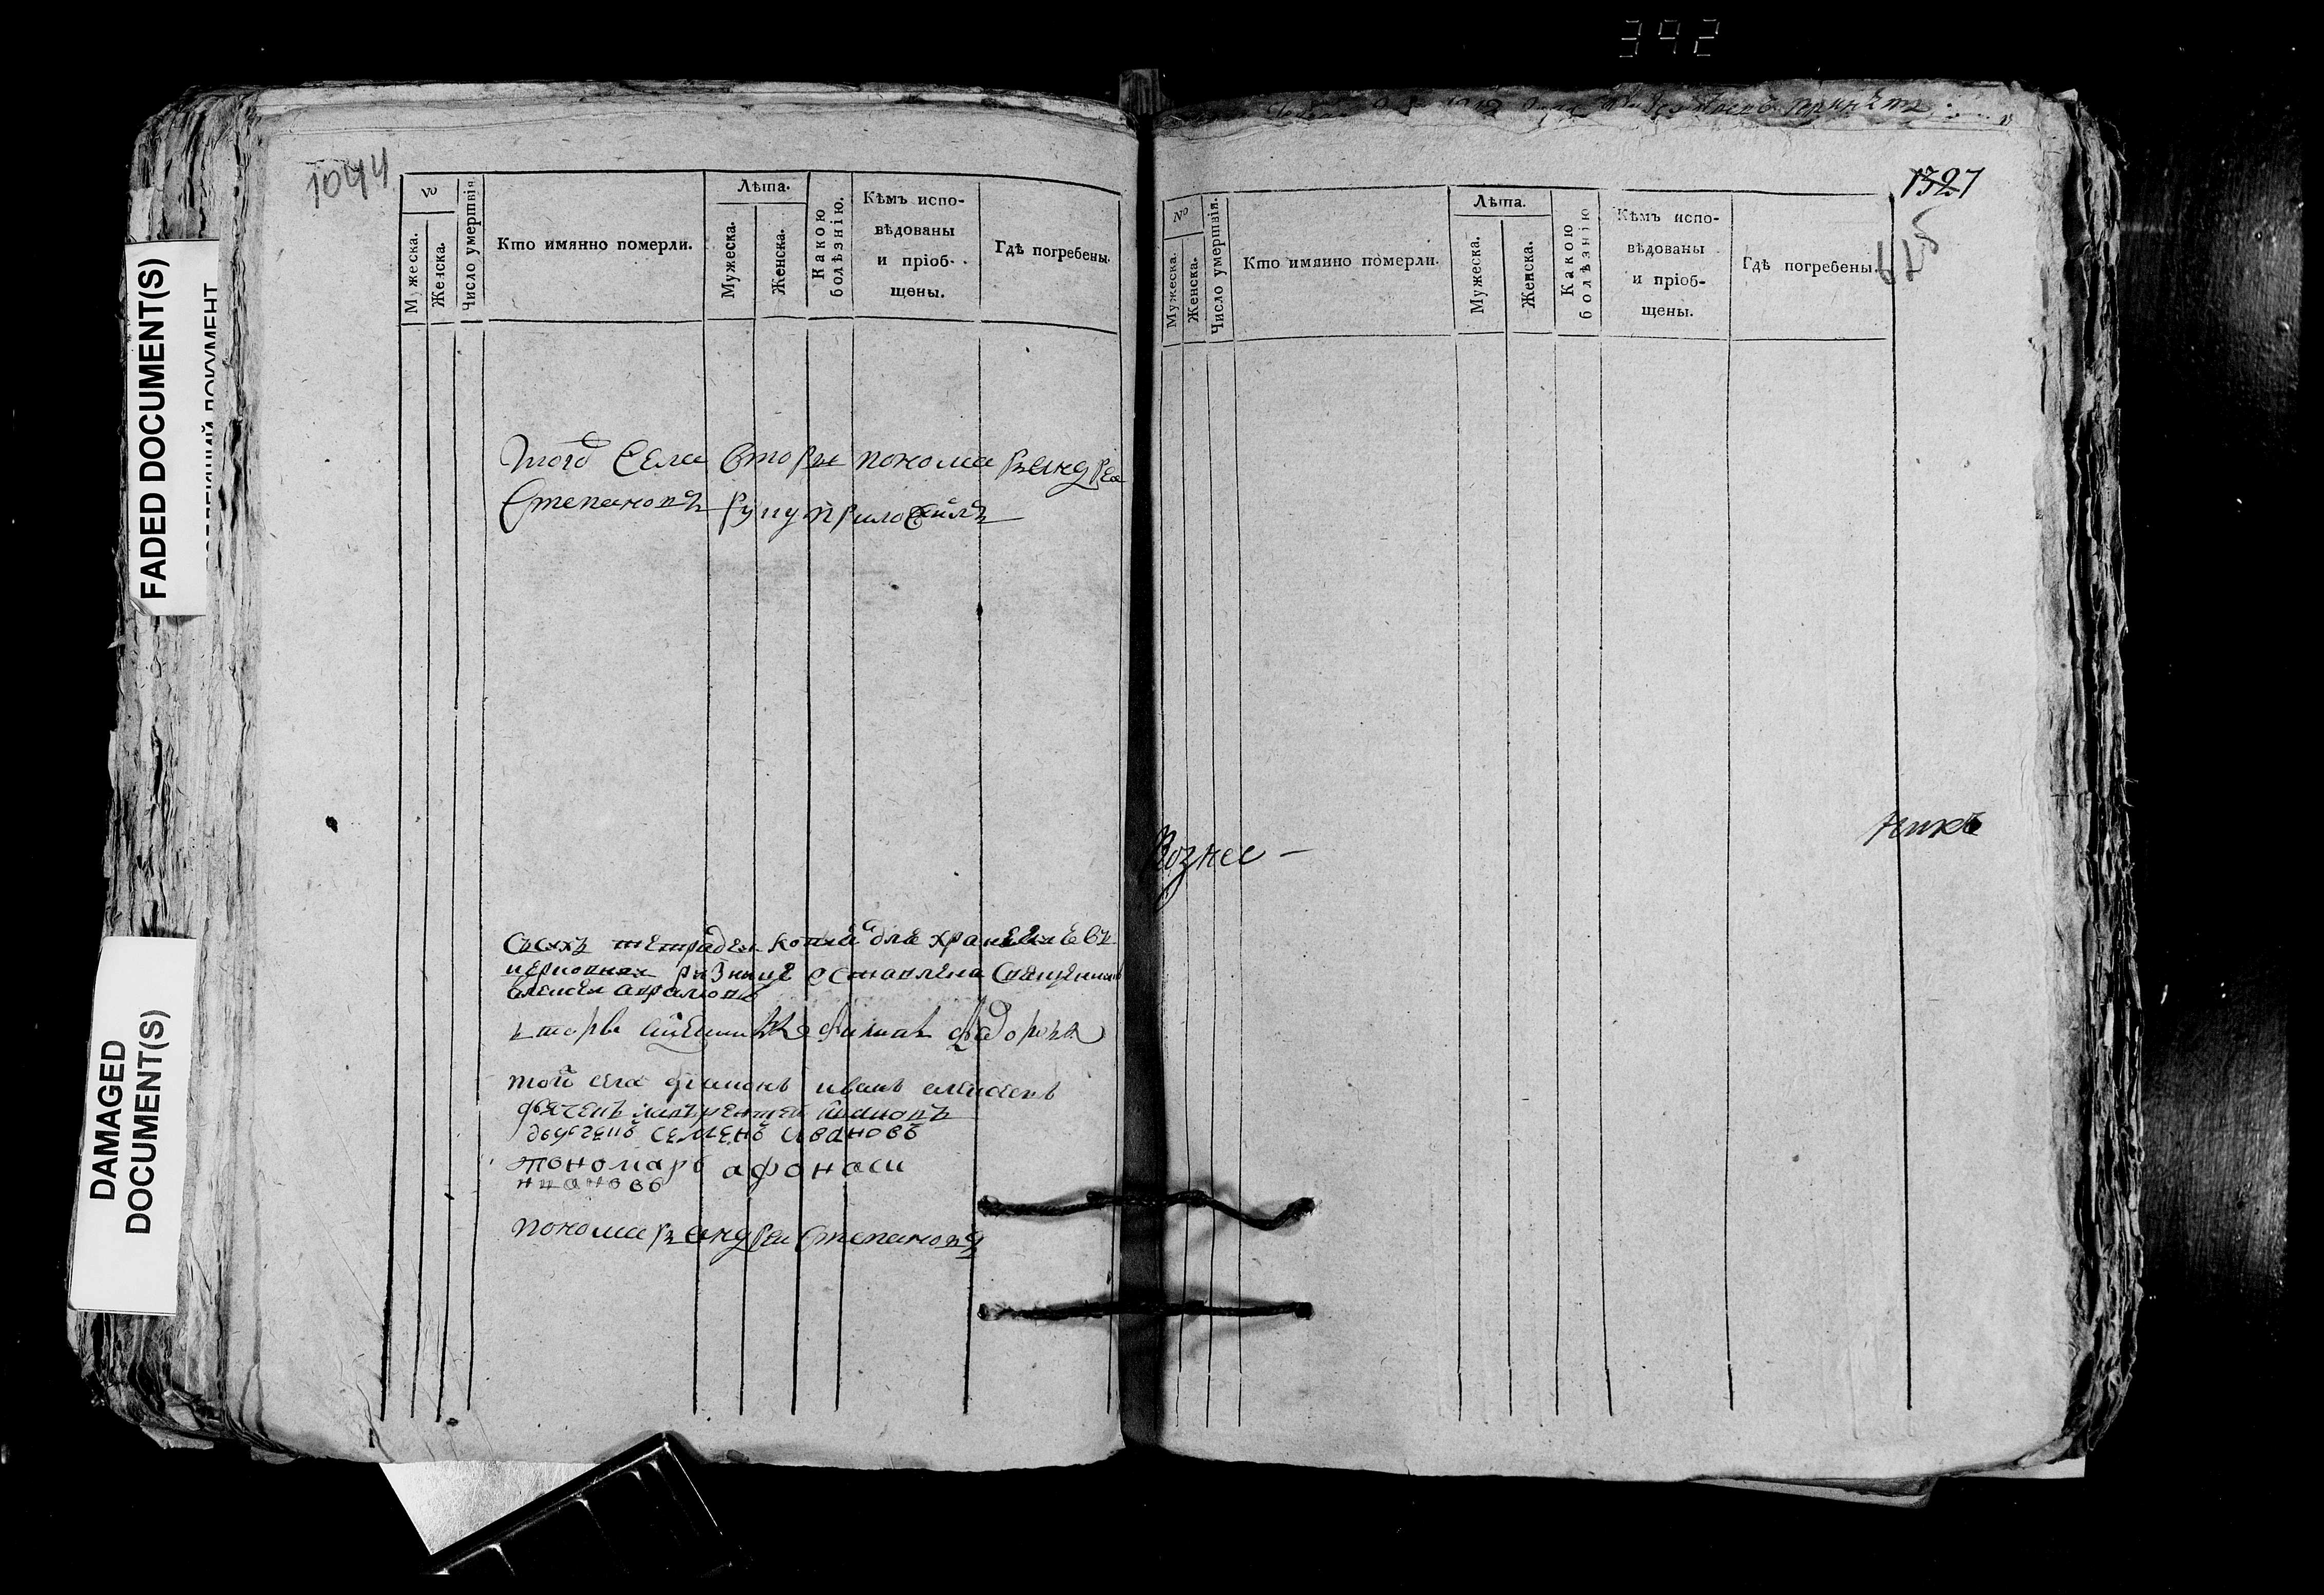 392
FADED DOCUMENT(S)
DAMAGED
DOCUMENT(S)
1044
№
Мужеска.
Женска.
Число умершвія.
Кто имянно померли.
Лѣта.
Мужеска.
Женска.
Какою
болѣзнію.
Кѣмъ испо-
вѣдованы
и пріоб-
щены.
Гдѣ погребены.
того села вторы пономарь андреи
степановъ руку приложилъ
съсихъ тетрадеи копиа для хранения въ
церковнои ризнице оставлена священникъ
алексеи
федоровъ
той села диаконъ иванъ алексеевъ
дьячекъ лаврентеи ивановъ
дьячекъ семенъ ивановъ
пономарь афонаси
ивановъ
пономарь андреи степановъ
1327
645
№
Мужеска.
Женска.
Число умершвія.
Кто имянно померли.
Лѣта.
Мужеска.
Женска.
Какою
болѣзнію
Кѣмъ испо-
вѣдованы
и пріоб-
щены.
Гдѣ погребены.
никъ
Вознес-